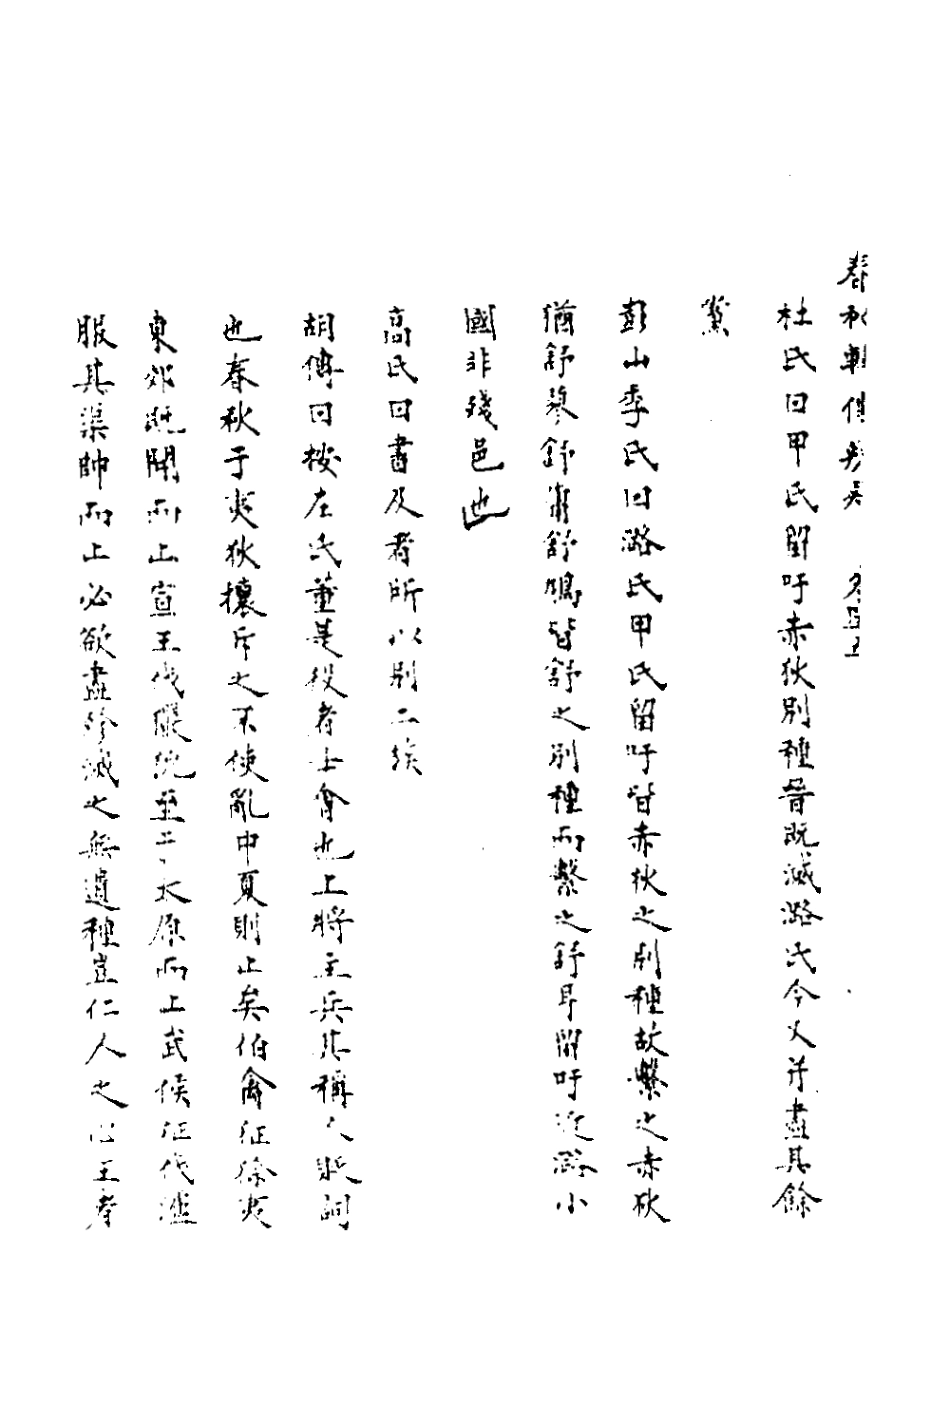 春秋輯傳
杜氏曰甲氏留吁赤狄別種晉既滅潞氏今又并盡其餘
黨
彭山季氏曰潞氏甲氏留吁皆赤狄之別種故繫之赤狄
猶舒蓼舒庸舒鳩皆舒之別種而繫之舒耳留吁近潞小
國非殘邑也
高氏曰書及者所以別二族
胡傳曰按左氏董是役者士會也上將主兵其稱人貶詞
也春秋于夷狄攘斥之不使亂中夏則止矣伯禽征徐夷
東郊既開而止宣王伐玁狁至于太原而止武侯征伐
服其渠帥而止必欲盡殄滅之無遺種豈仁人之心王者